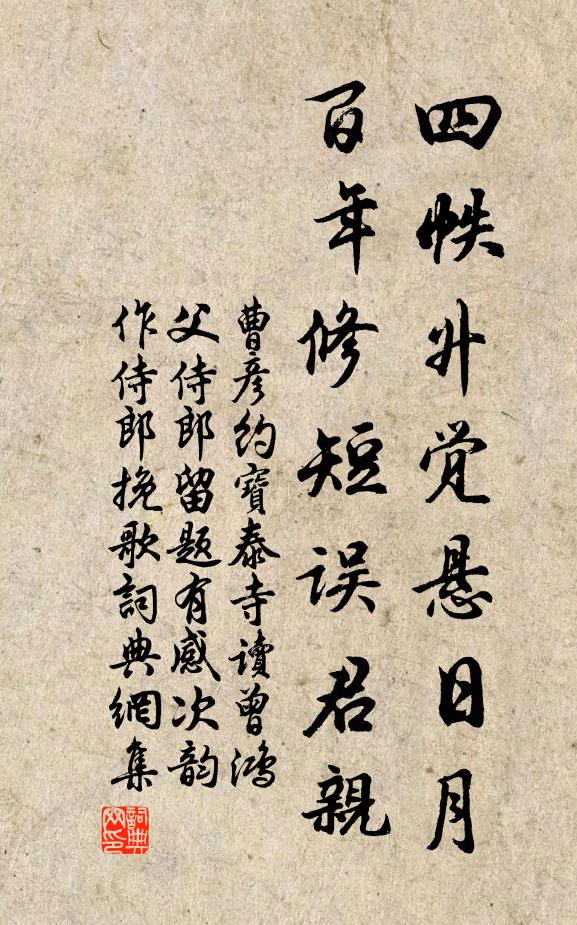 四帙升觉悬日月
百年修短误君親
曹彦约寶泰寺讀曾鸿
父侍郎留题有感次韵
作侍郎挽歌詞典網集
詞典网印